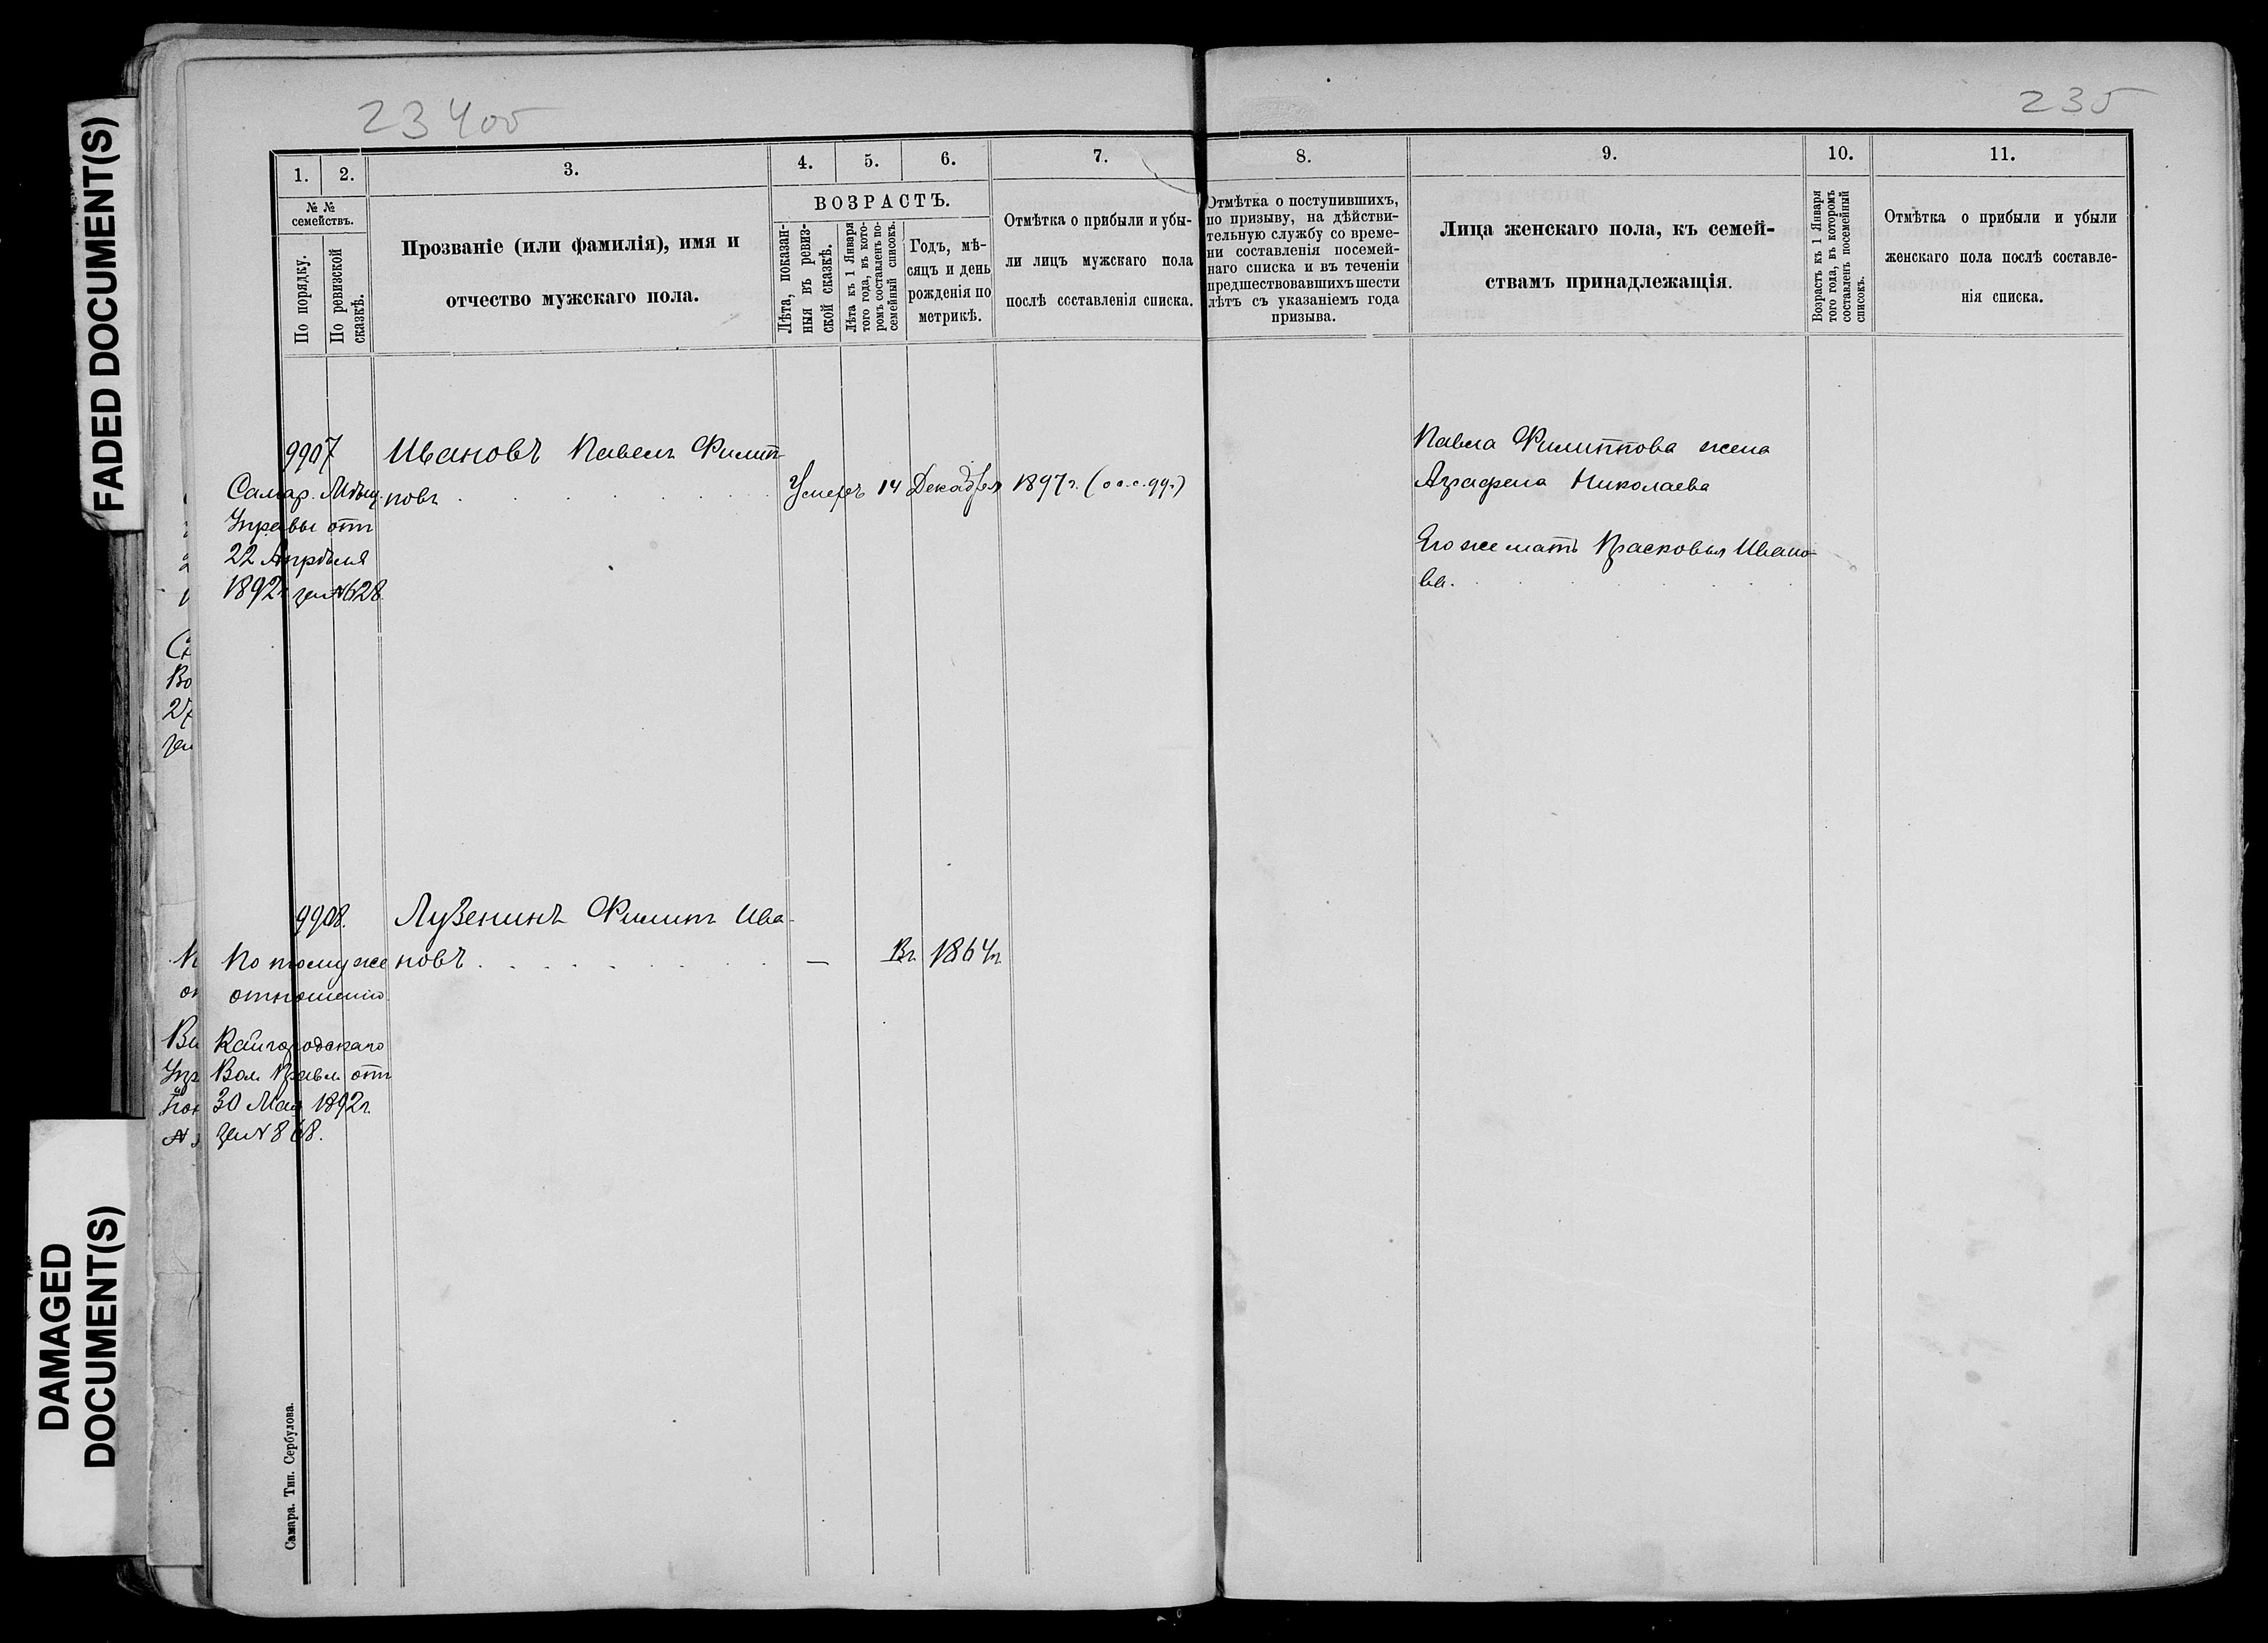 FADED DOCUMENT(S)
DAMAGED
DOCUMENT(S)
23400
235
1.
2.
3.
4.
5.
6.
7.
8.
9.
10.
11.
№ №
семействъ.
По порядку.
По ревизской
сказкѣ.
Прозваніе (или фамилія), имя и
отчество мужскаго пола.
ВОЗРАСТЪ.
Лѣта, показан-
ныя въ ревиз-
ской сказкѣ.
Лѣта къ 1 Января
того года, въ кото-
ромъ составленъ по-
семейный списокъ.
Годъ, мѣ-
сяцъ и день
рожденія по
метрикѣ.
Отмѣтка о прибыли и убы-
ли лицъ мужскаго пола
послѣ составленія списка.
Отмѣтка о поступившихъ,
по призыву, на дѣйстви-
тельную службу со време-
ни составленія посемей-
наго списка и въ теченіи
предшествовавшихъ шести
лѣтъ съ указаніемъ года
призыва.
Лица женскаго пола, къ семей-
ствамъ принадлежащія.
Возрастъ къ 1 Января
того года, въ которомъ
составленъ посемейный
списокъ.
Отмѣтка о прибыли и убыли
женскаго пола послѣ составле-
нія списка.
9907 Ивановъ Павелъ Филип-
повъ Умеръ 14 Декабря 1897 г.
Самар. Мѣщ.
Управы отъ
22 Апрѣля
1892 г за № 628
Павла Филиппова жена
Аграфена Николаева
Его же мать Прасковья Ивано-
ва.
9908. Лузенинъ Филипъ Ива-
новъ — Въ 1864 г.
По тому же
отношенію
Кайгородскаго
Вол. Правл. отъ
30 Мая 1892 г.
за № 868.
Самара. Тип. Сербулова.